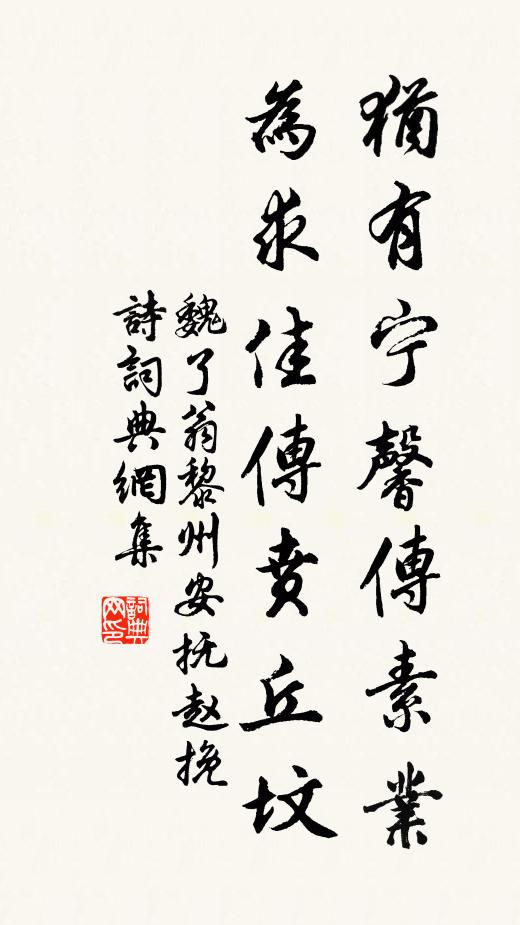 猶有宁馨傳素業
為求佳傳賁丘坟
魏了翁黎州安抚赵挽
詩詞典網集
詞典网印